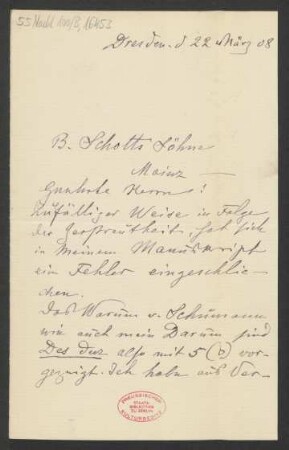 55 Nachl 100/B, 16453
Dresden. d 22 März 08
B. Schotts Söhne
Mainz —
Geehrte Herrn!
Zufälliger Weise in Folge
der Zerstreutheit, hat sich
in meinem Manuskript
ein Fehler eingeschlie-
chen.
Das Warum v. Schumann
wie auch mein Darum sind
Des dur also mit 5 (b) vor-
gezeigt. Ich habe aus Ver-
PREUSSISCHER
STAATS-
BIBLIOTHEK
ZU BERLIN
KULTURBESITZ